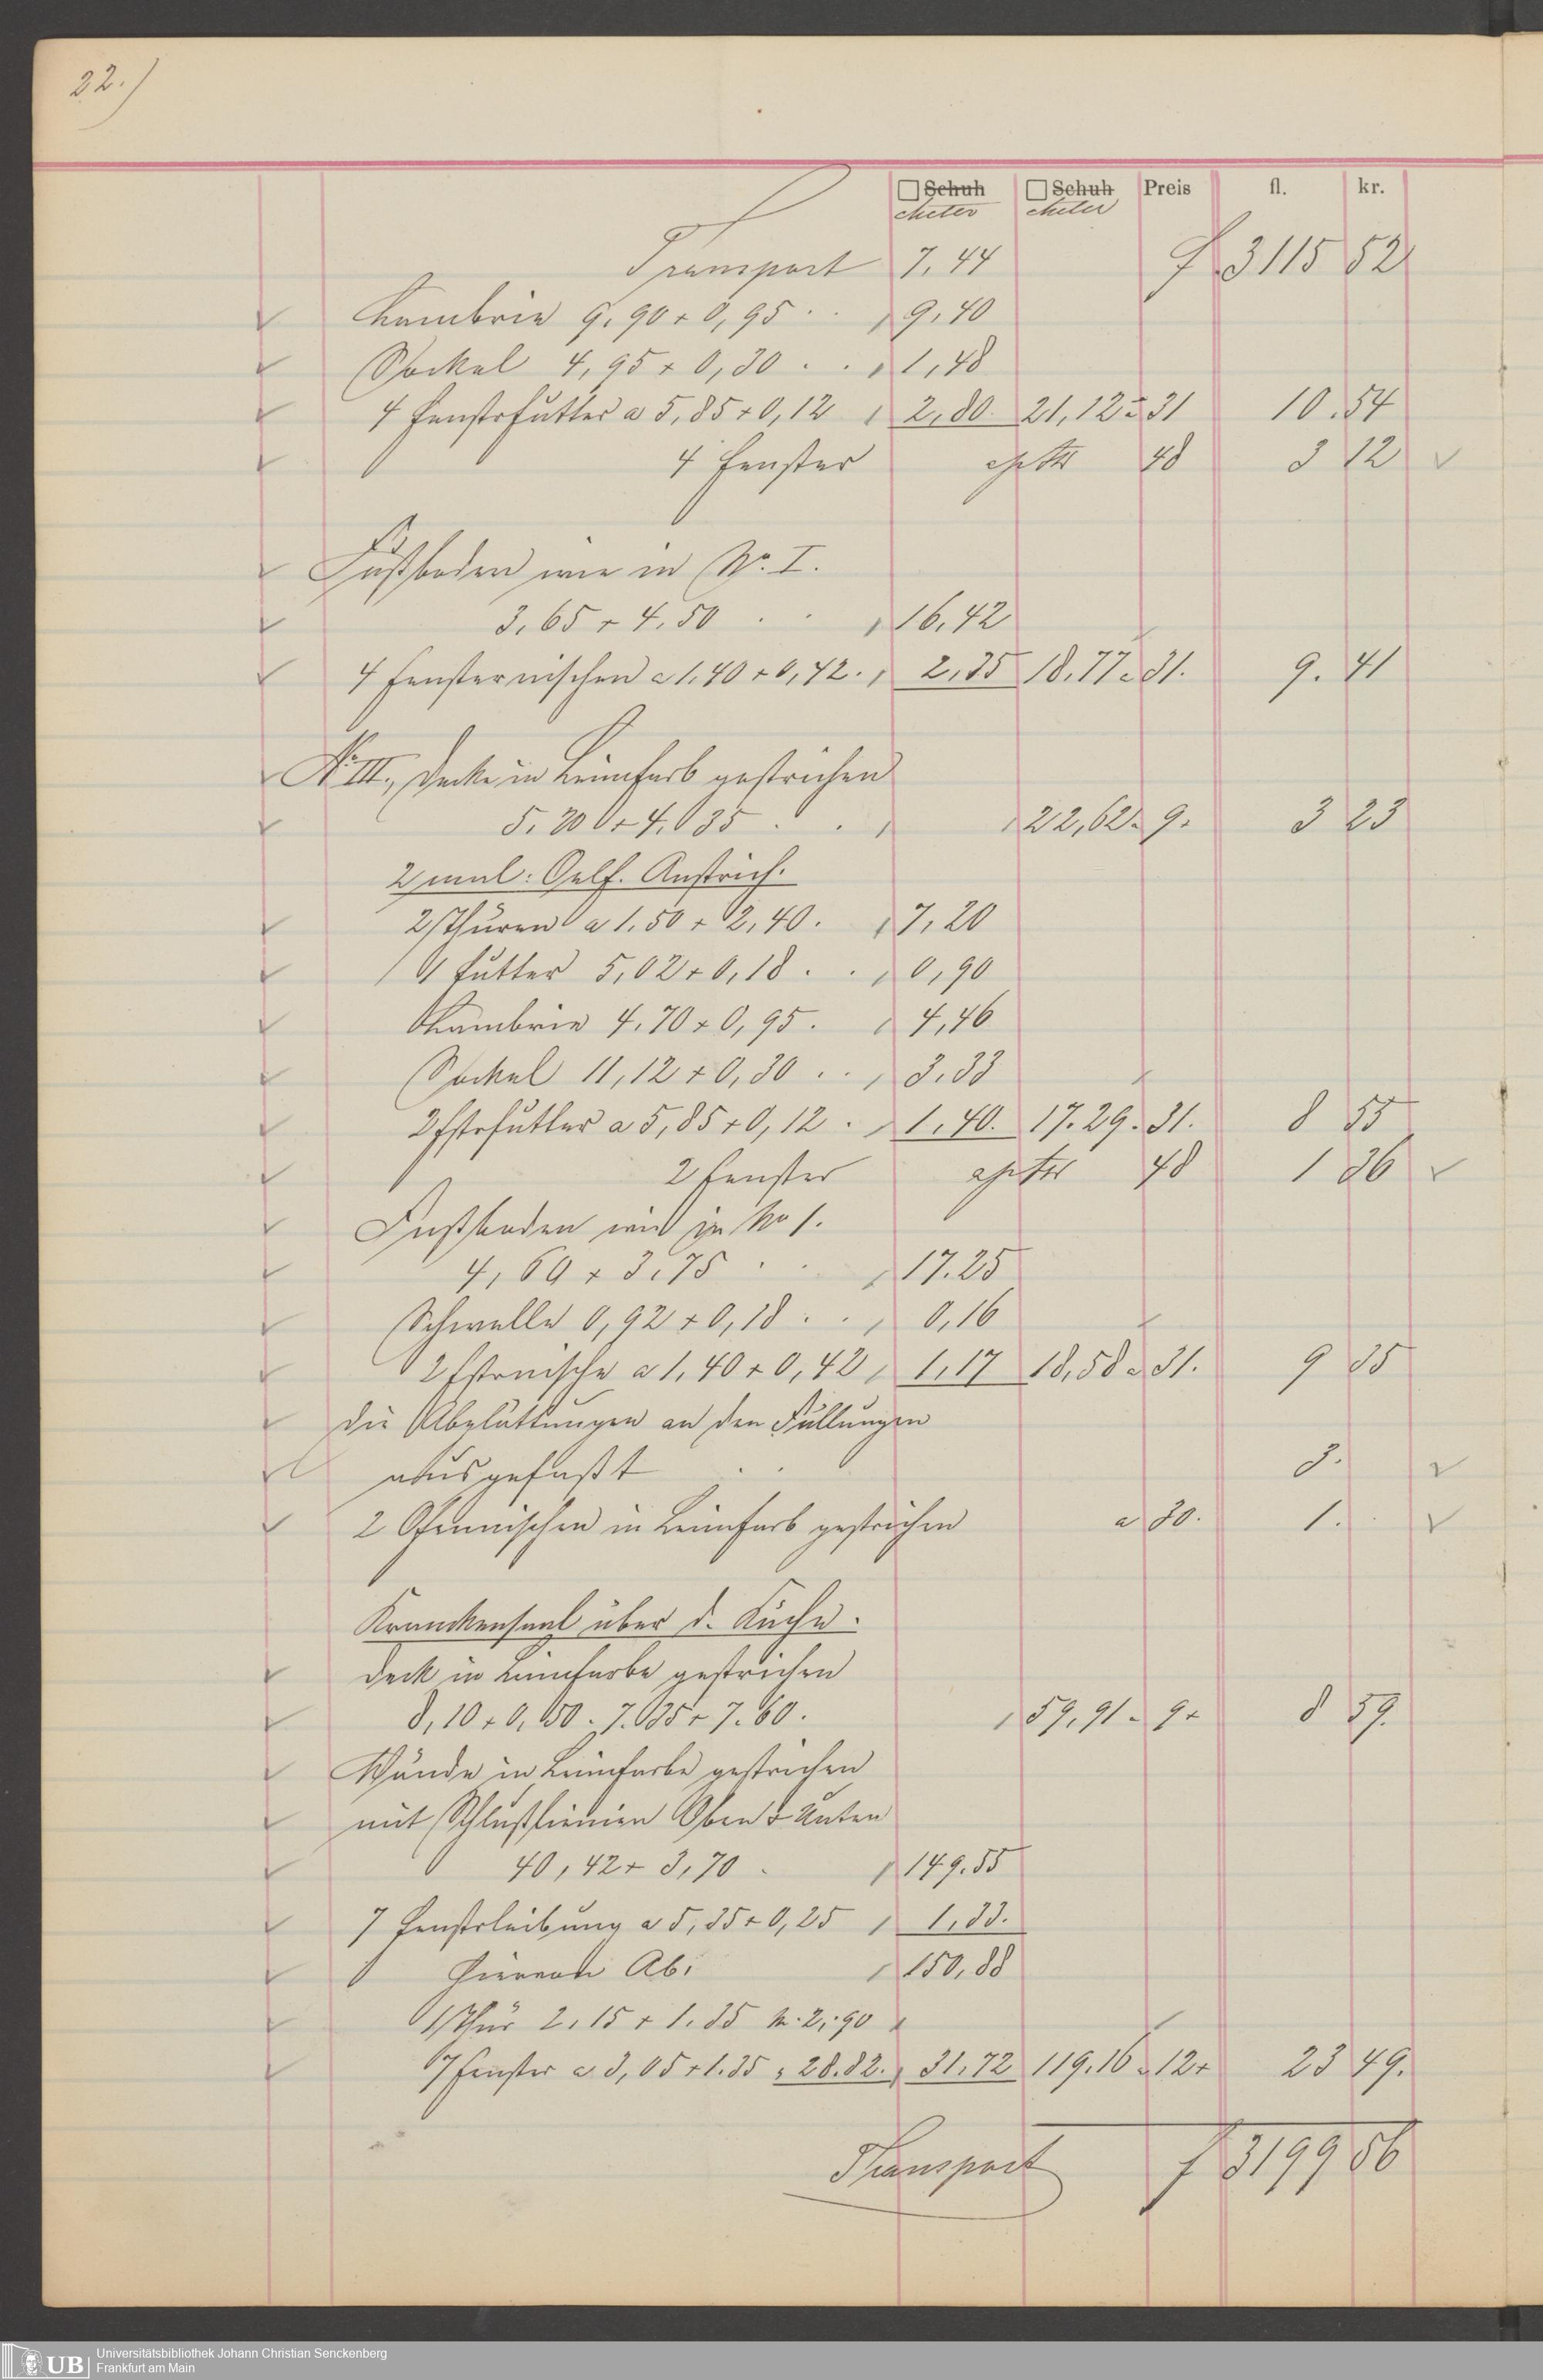 22.)
□ Schuh □ Schuh Preis fl. kr.
Meter Meter
Transport 7,44 f 3115 52
Lambrie 9,90 + 0,95 . . , 9,40
Sockel 4,95 + 0,30 . . , 1,48
4 Fensterfutter a 5,85 + 0,12 , 2,80. 21,12 = 31 10. 54
4 Fenster 48 3 12
Fußboden wie in No. I.
3,65 + 4,50 . . , 16,42
4 Fensternischen a 1,40 + 0,42. , 2,35 18,77 a 31. 9. 41
No. III., Decke in Leimfarb gestrichen
5,20 + 4,35 . . , , 22,62 a 9. 3 23
2 mal: Oelf. Anstrich.
2 Thüren a 1,50 + 2,40. , 7,20
1 Futter 5,02 + 0,18 . . , 0,90
Lambrie 4,70 + 0,95. , 4,46
Sockel 11,12 + 0,30 . . , 3,33
2 Fstrfutter a 5,85 + 0,12 . , 1,40. 17.29. 31. 8 55
2 Fenster 48 1 36
Fußboden wie in No 1.
4,60 + 3,75 . . , 17.25
Schwelle 0,92 + 0,18 . . , 0,16
2 Fstrnische a 1,40 + 0,42 , 1,17 18,58 a 31. 9 35
die Abplattungen an den Füllungen
ausgefaßt . . 3.
2 Ofennischen in Leimfarb gestrichen a 30. 1.
Krankensaal über d. Küche.
Deck in Leimfarbe gestrichen
8,10 + 0,50. 7.35 + 7.60. , 59,91 a 9 + 8 59.
Wände in Leimfarbe gestrichen
mit Schlußlinien Oben & Unten
40,42 + 3,70 . , 149.55
7 Fensterleibung a 5,35 + 0,25 , 1,33.
Hiervon Ab: , 150,88
1 Thür 2,15 + 1.35 M. 2,90 ,
7 Fenster a 3,05 + 1.35 , 28.82. , 31.72 119,16 a 12 + 23 49.
Transport f 3199 56
UB Universitätsbibliothek Johann Christian Senckenberg
Frankfurt am Main